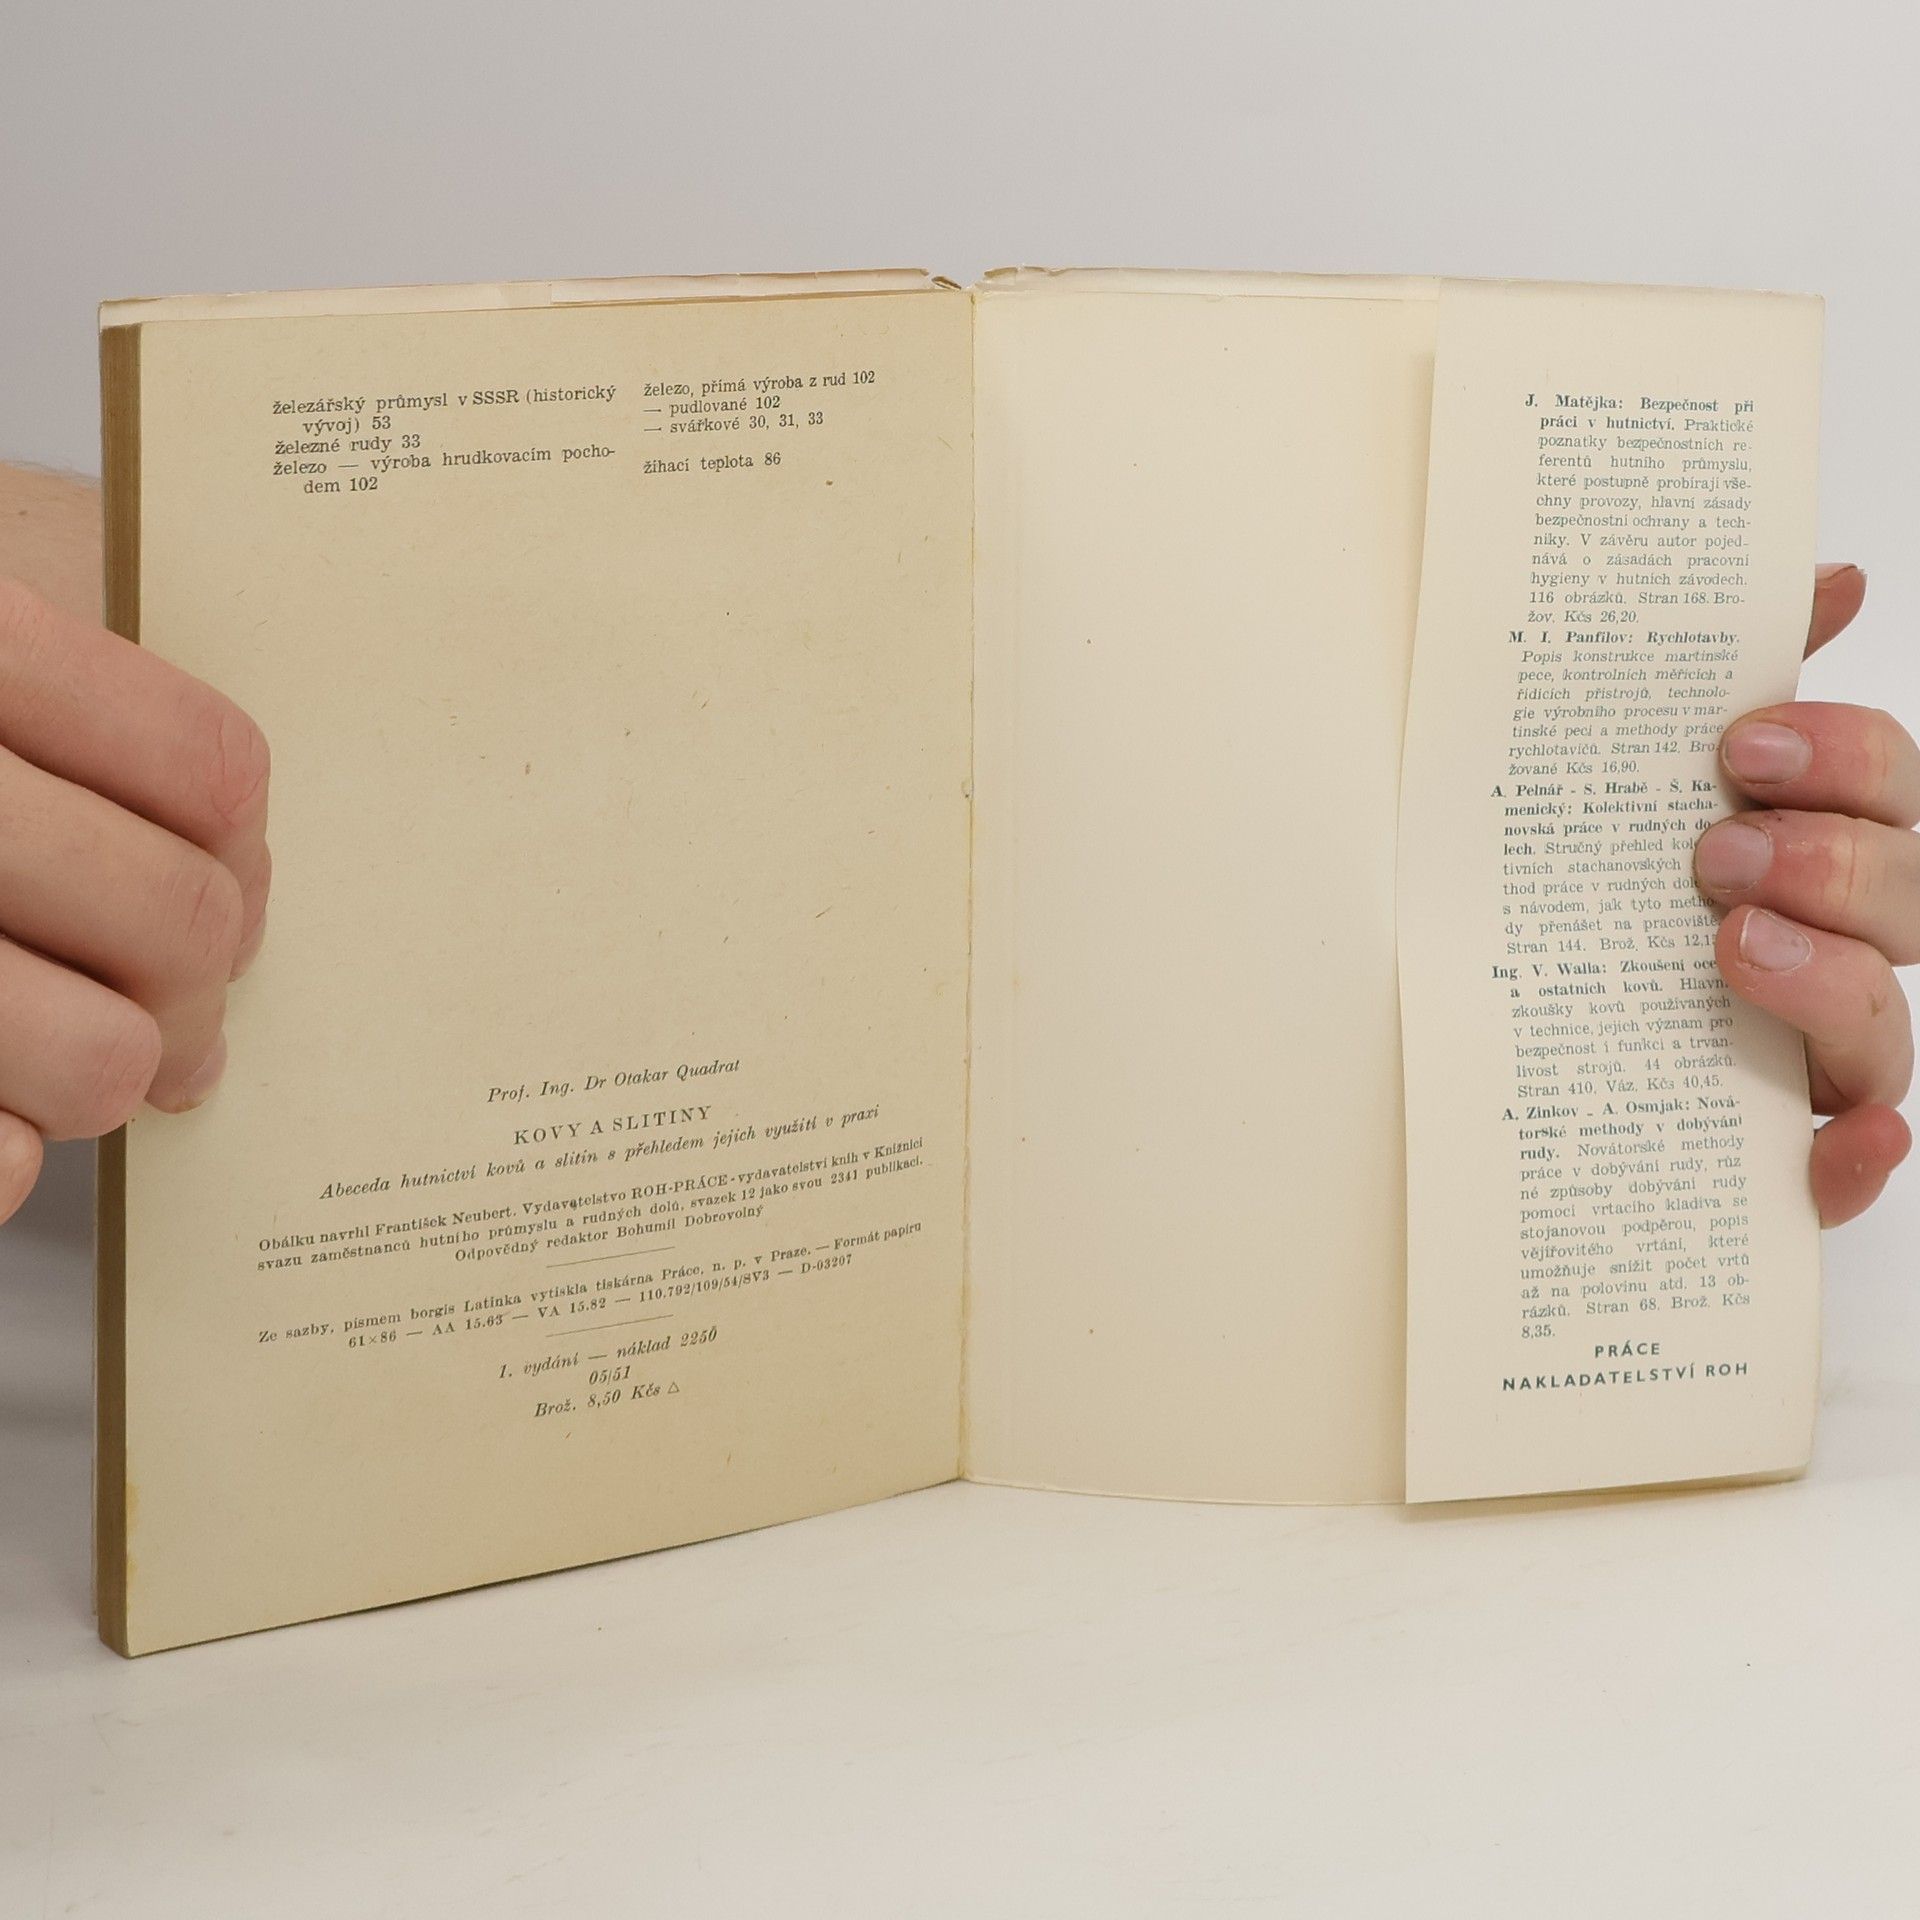 železářský průmysl v SSSR (historický
vývoj) 53
železné rudy 33
železo — výroba hrudkovacím pocho-
dem 102
železo, přímá výroba z rud 102
— pudlované 102
— svářkové 30, 31, 33
žíhací teplota 86
Prof. Ing. Dr Otakar Quadrat
KOVY A SLITINY
Abeceda hutnictví kovů a slitin s přehledem jejich využití v praxi
Obálku navrhl František Neubert. Vydavatelstvo ROH-PRÁCE - vydavatelství knih v Knižnici
svazu zaměstnanců hutního průmyslu a rudných dolů, svazek 12 jako svou 2341 publikaci.
Odpovědný redaktor Bohumil Dobrovolný
Ze sazby, písmem borgis Latinka vytiskla tiskárna Práce, n. p. v Praze. — Formát papíru
61×86 — AA 15.63 — VA 15.82 — 110.792/109/54/SV3 — D-03207
1. vydání — náklad 2250
05/51
Brož. 8,50 Kčs △
J. Matějka: Bezpečnost při
práci v hutnictví. Praktické
poznatky bezpečnostních re-
ferentů hutního průmyslu,
které postupně probírají vše-
chny provozy, hlavní zásady
bezpečnostní ochrany a tech-
niky. V závěru autor pojed-
nává o zásadách pracovní
hygieny v hutních závodech.
116 obrázků. Stran 168. Bro-
žov. Kčs 26,20.
M. I. Panfilov: Rychlotavby.
Popis konstrukce martinské
pece, kontrolních měřicích a
řídicích přístrojů, technolo-
gie výrobního procesu v mar-
tinské peci a methody práce
rychlotavičů. Stran 142. Bro-
žované Kčs 16,90.
A. Pelnář - S. Hrabě - Š. Ka-
menický: Kolektivní stacha-
novská práce v rudných do-
lech. Stručný přehled
tivních stachanovských
thod práce v rudných
s návodem, jak tyto metho-
dy přenášet na pracoviště.
Stran 144. Brož. Kčs 12,15
Ing. V. Walla: Zkoušení
a ostatních kovů.
zkoušky kovů používaných
v technice, jejich význam pro
bezpečnost i funkci a trvan-
livost strojů. 44 obrázků.
Stran 410. Váz. Kčs 40,45.
A. Zinkov - A. Osmjak: Nová-
torské methody v dobývání
rudy. Novátorské methody
práce v dobývání rudy, růz
né způsoby dobývání rudy
pomocí vrtacího kladiva se
stojanovou podpěrou, popis
vějířovitého vrtání, které
umožňuje snížit počet vrtů
až na polovinu atd. 13 ob-
rázků. Stran 68. Brož. Kčs
8,35.
PRÁCE
NAKLADATELSTVÍ ROH